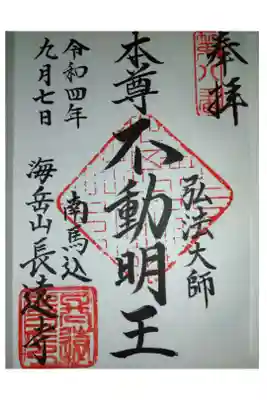 奉拝
弘法大師
本尊不動明王
南馬込
海岳山長遠寺
令和四年
九月七日